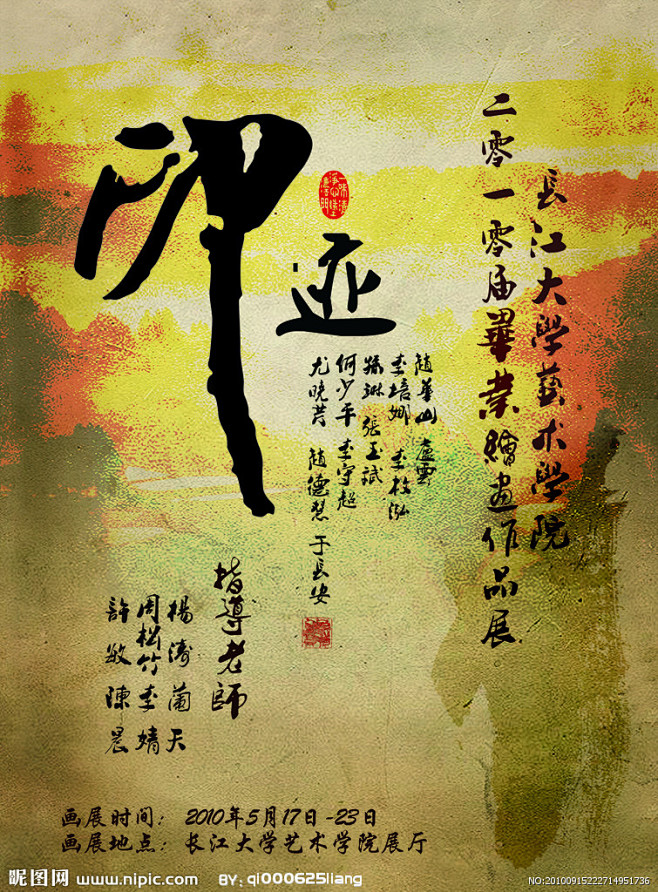 印迹
長江大學藝术學院
二零一零届畢業繪画作品展
趙華山 盧雲
李培娜 李枚泓
張玉斌
何少平 李守超
尤晓芳 趙德慧 于長安
指導老師
楊濤 蘭天
周松竹 李婧
許敏 陳晨
画展时间: 2010年5月17日-23日
画展地点: 长江大学艺术学院展厅
昵图网 www.nipic.com BY: qi000625liang
NO:20100915222714951736